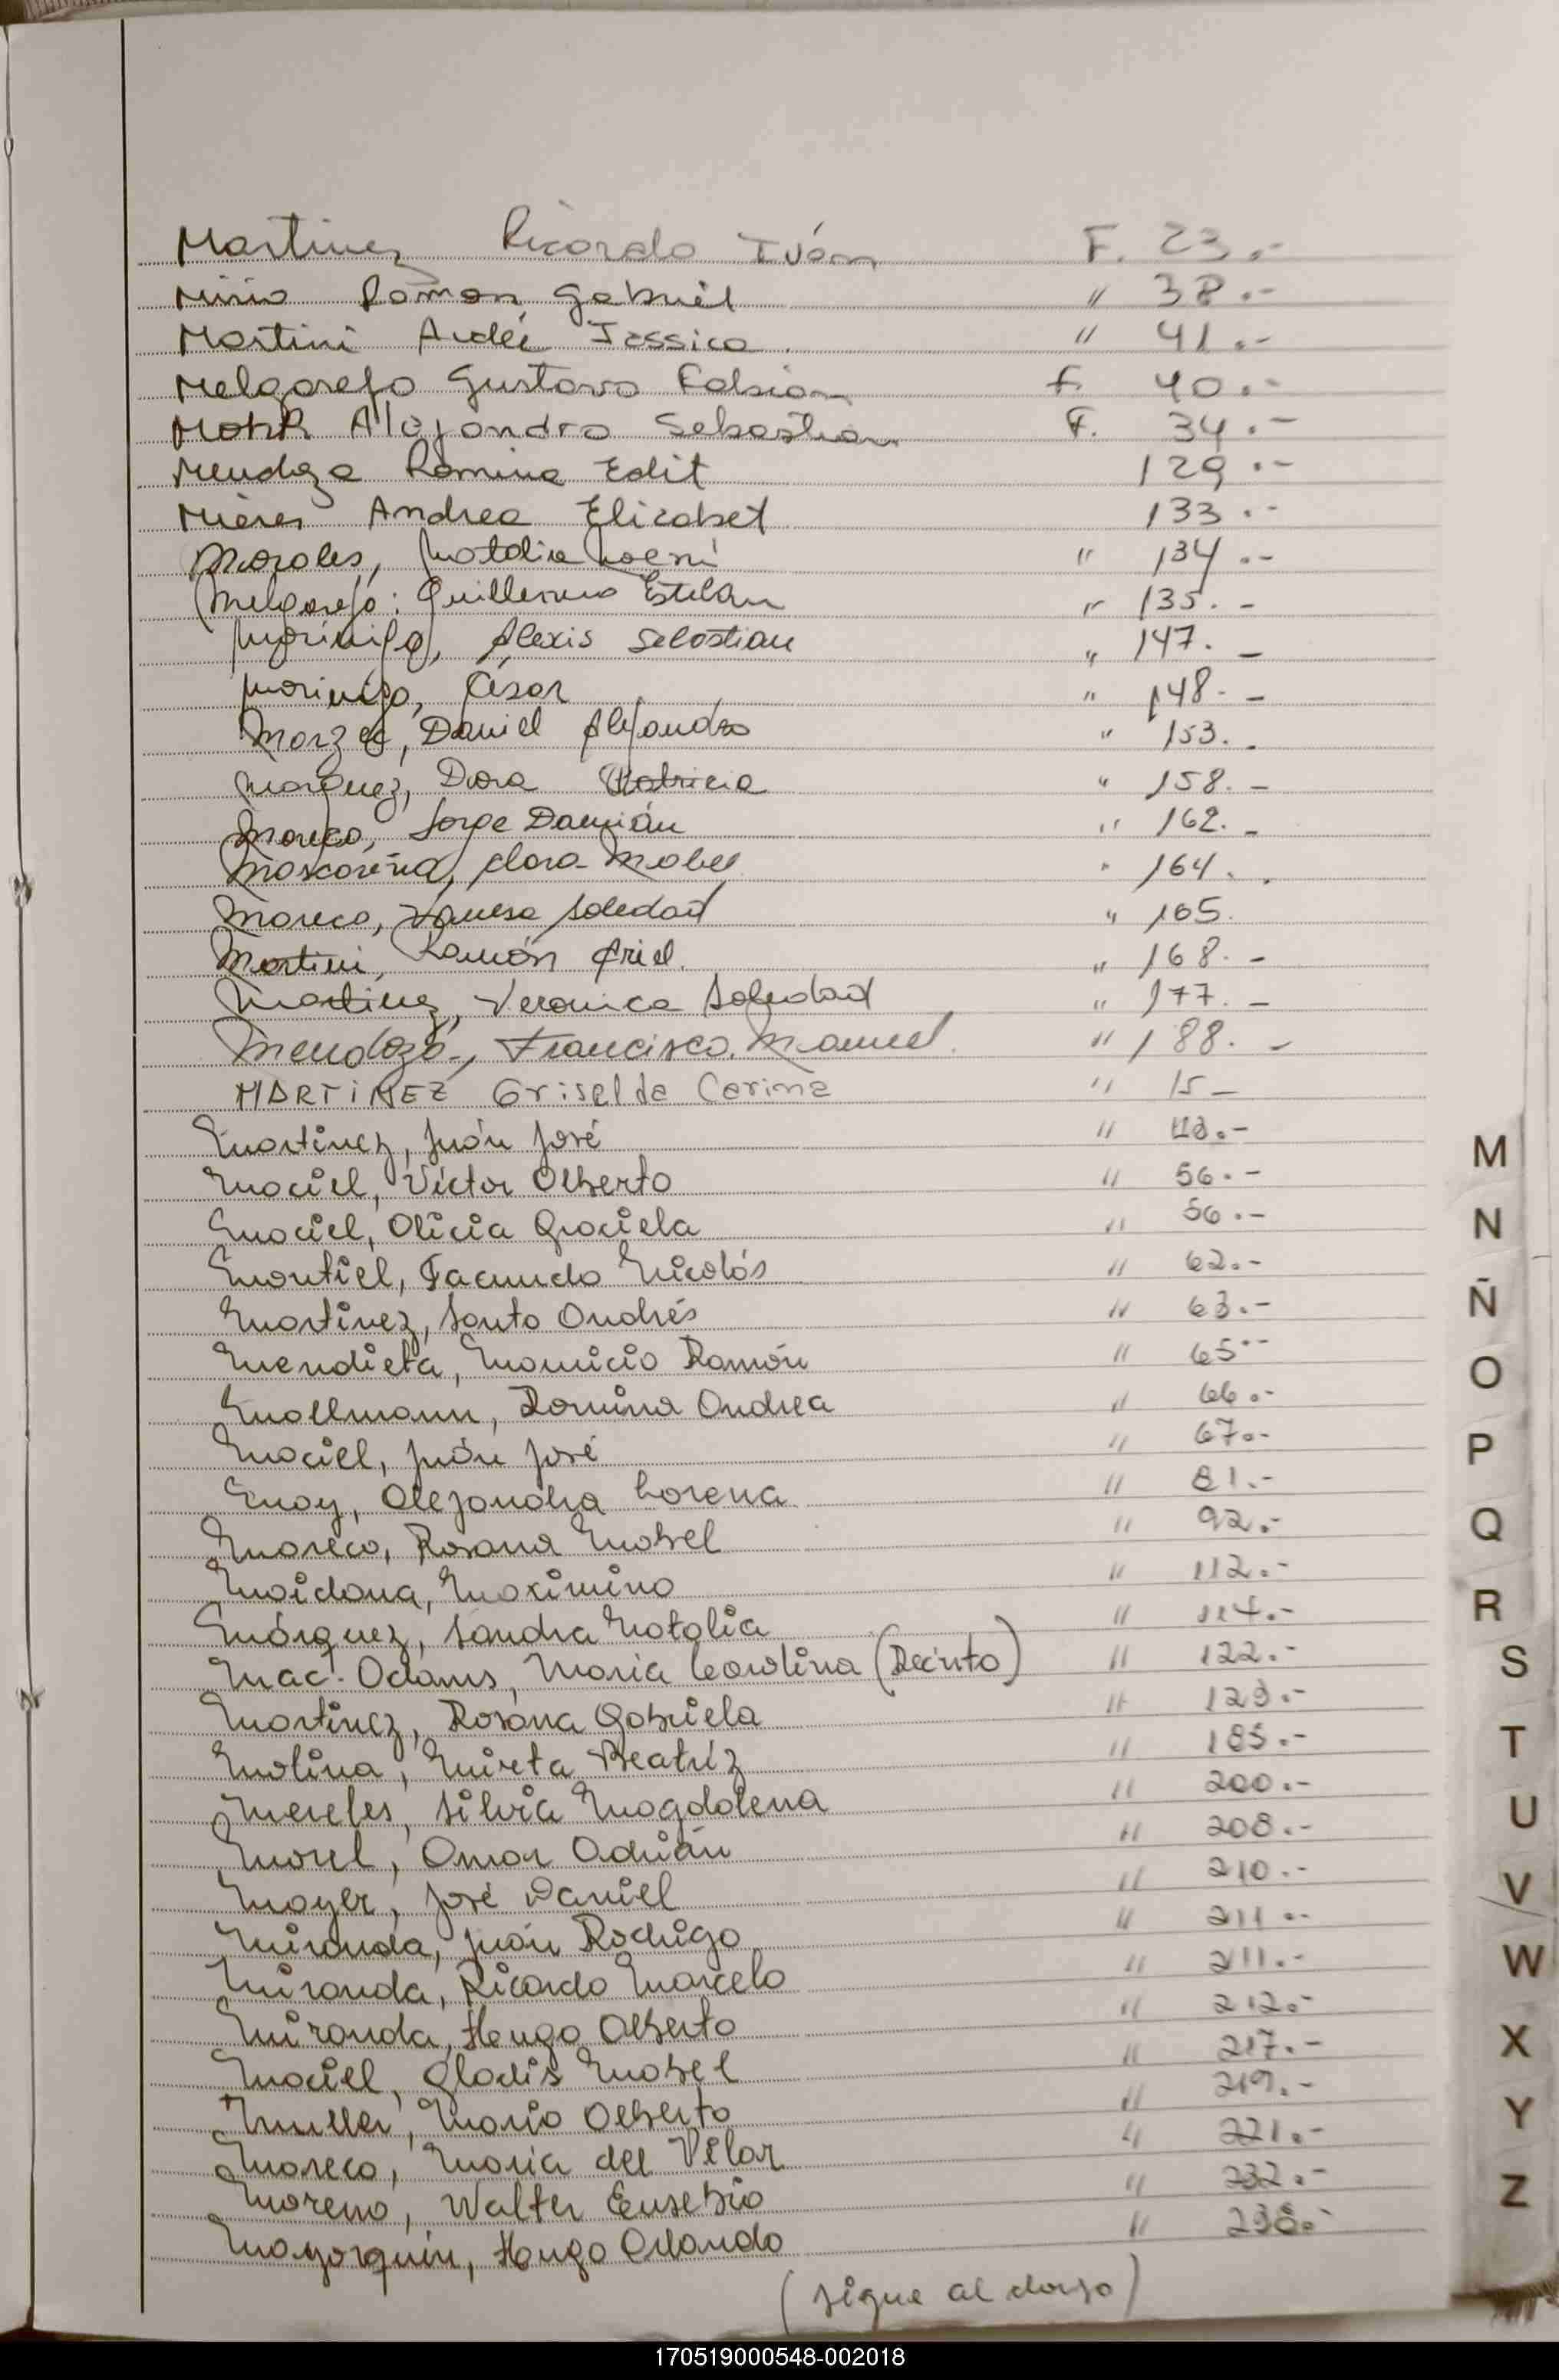 Martinez Ricardo Iván F. 23.-
Miño Ramon Gabriel " 38.-
Martini Aidée Jessica " 41.-
Melgarejo Gustavo Fabian F. 40.-
Alejandro Sebastian F. 34.-
Mendoza Romina Edit 129.-
Mieres Andrea Elizabet 133.-
Morales, Natalia Noemí " 134.-
Melgarejo: Guillermo Esteban " 135.-
Morinigo, Alexis Sebastian " 147.-
Morinigo, César " 148.-
Daniel Alejandro " 153.-
Marquez, Dora Patricia " 158.-
Mareco, Jorge Damián " 162.-
Mascareña, Clara Mabel " 164.
Mareco, Vanesa Soledad " 165.
Martini, Ramón Ariel. " 168.-
Martinez, Veronica Soledad " 177.-
Mendoza, Francisco Manuel. " 188.-
MARTINEZ Griselda Carina " 15-
Martinez, Juán José "
Maciel, Víctor Alberto " 56.-
Maciel, Alicia Graciela " 56.-
Montiel, Facundo Nicolás " 62.-
Martinez, Santo Andrés " 63.-
Mendieta, Mauricio Ramón " 65.-
Mallmann, Romina Andrea " 66.-
Maciel, Juán José " 67.-
May, Alejandra Lorena " 81.-
Mareco, Rosana Mabel " 92.-
Maidana, Maximino " 112.-
Márquez, Sandra Natalia " 114.-
Mac. Adams, Maria Carolina (Recinto) " 122.-
Martinez, Rosana Gabriela " 123.-
Molina, Mirta Beatríz " 185.-
Mereles, Silvia Magdalena " 200.-
Morel, Omar Adrián " 208.-
Mayer, José Daniel " 210.-
Miranda, Juán Rodrigo " 211.-
Miranda, Ricardo Marcelo " 211.-
Miranda, Hugo Alberto " 212.-
Maciel, Gladis Mabel " 217.-
Muller, Mario Alberto " 219.-
Mareco, Maria del Pilar " 221.-
Moreno, Walter Eusebio " 232.-
Mayorquin, Hugo Orlando " 238.-
(sigue al dorso)
M
N
Ñ
O
P
Q
R
S
T
U
V
W
X
Y
Z
170519000548-002018